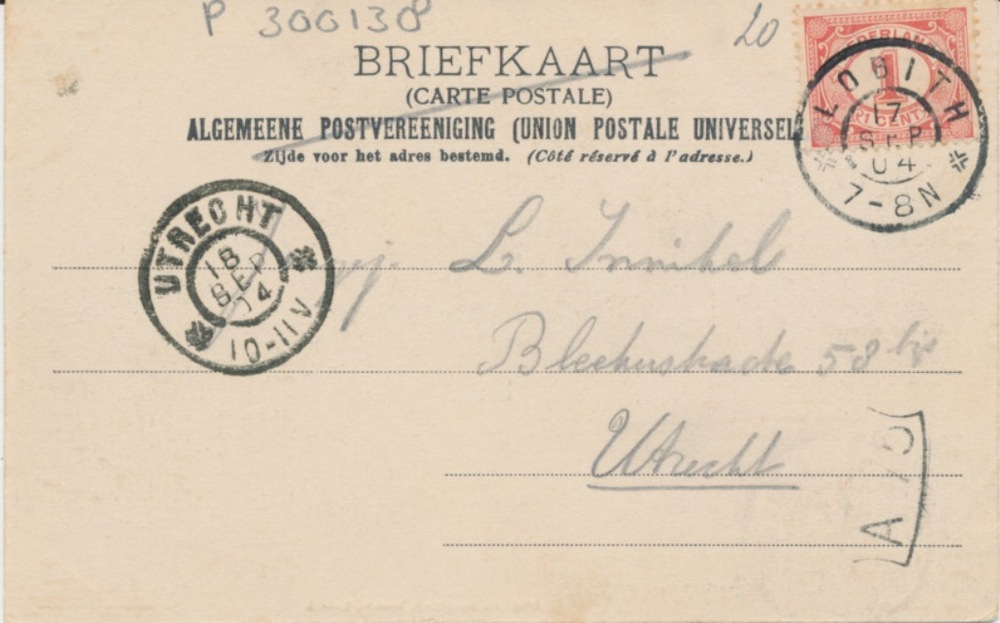 P 3001308
20
BRIEFKAART
(CARTE POSTALE)
ALGEMEENE POSTVEREENIGING (UNION POSTALE UNIVERSEL
Zijde voor het adres bestemd. (Côté réservé à l'adresse.)
NEDERLAND
1
CENT
LOBITH
17
SEP
04
7-8N
UTRECHT
18
SEP
04
10-11V
L.
58 bis
Utrecht
A